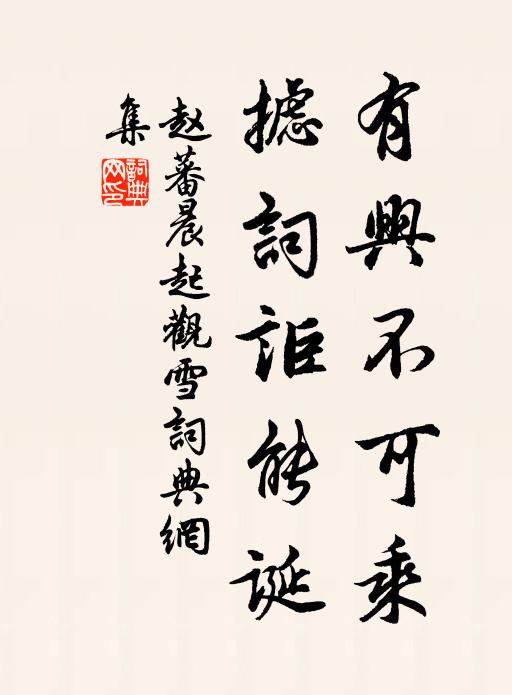 有興不可乘
摅詞詎能誕
赵蕃晨起觀雪詞典網
集
詞典
網印